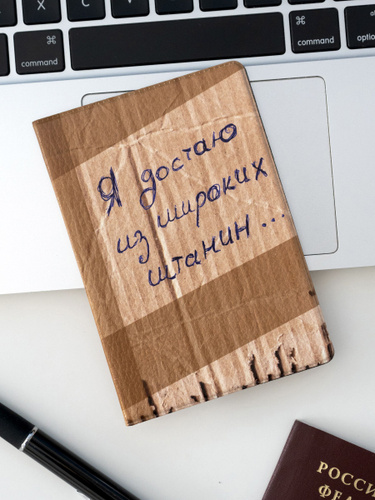 X
C
⌘
command
⌘
command
option
Я достаю
из широких
штанин...
РОССИ
ФЕ